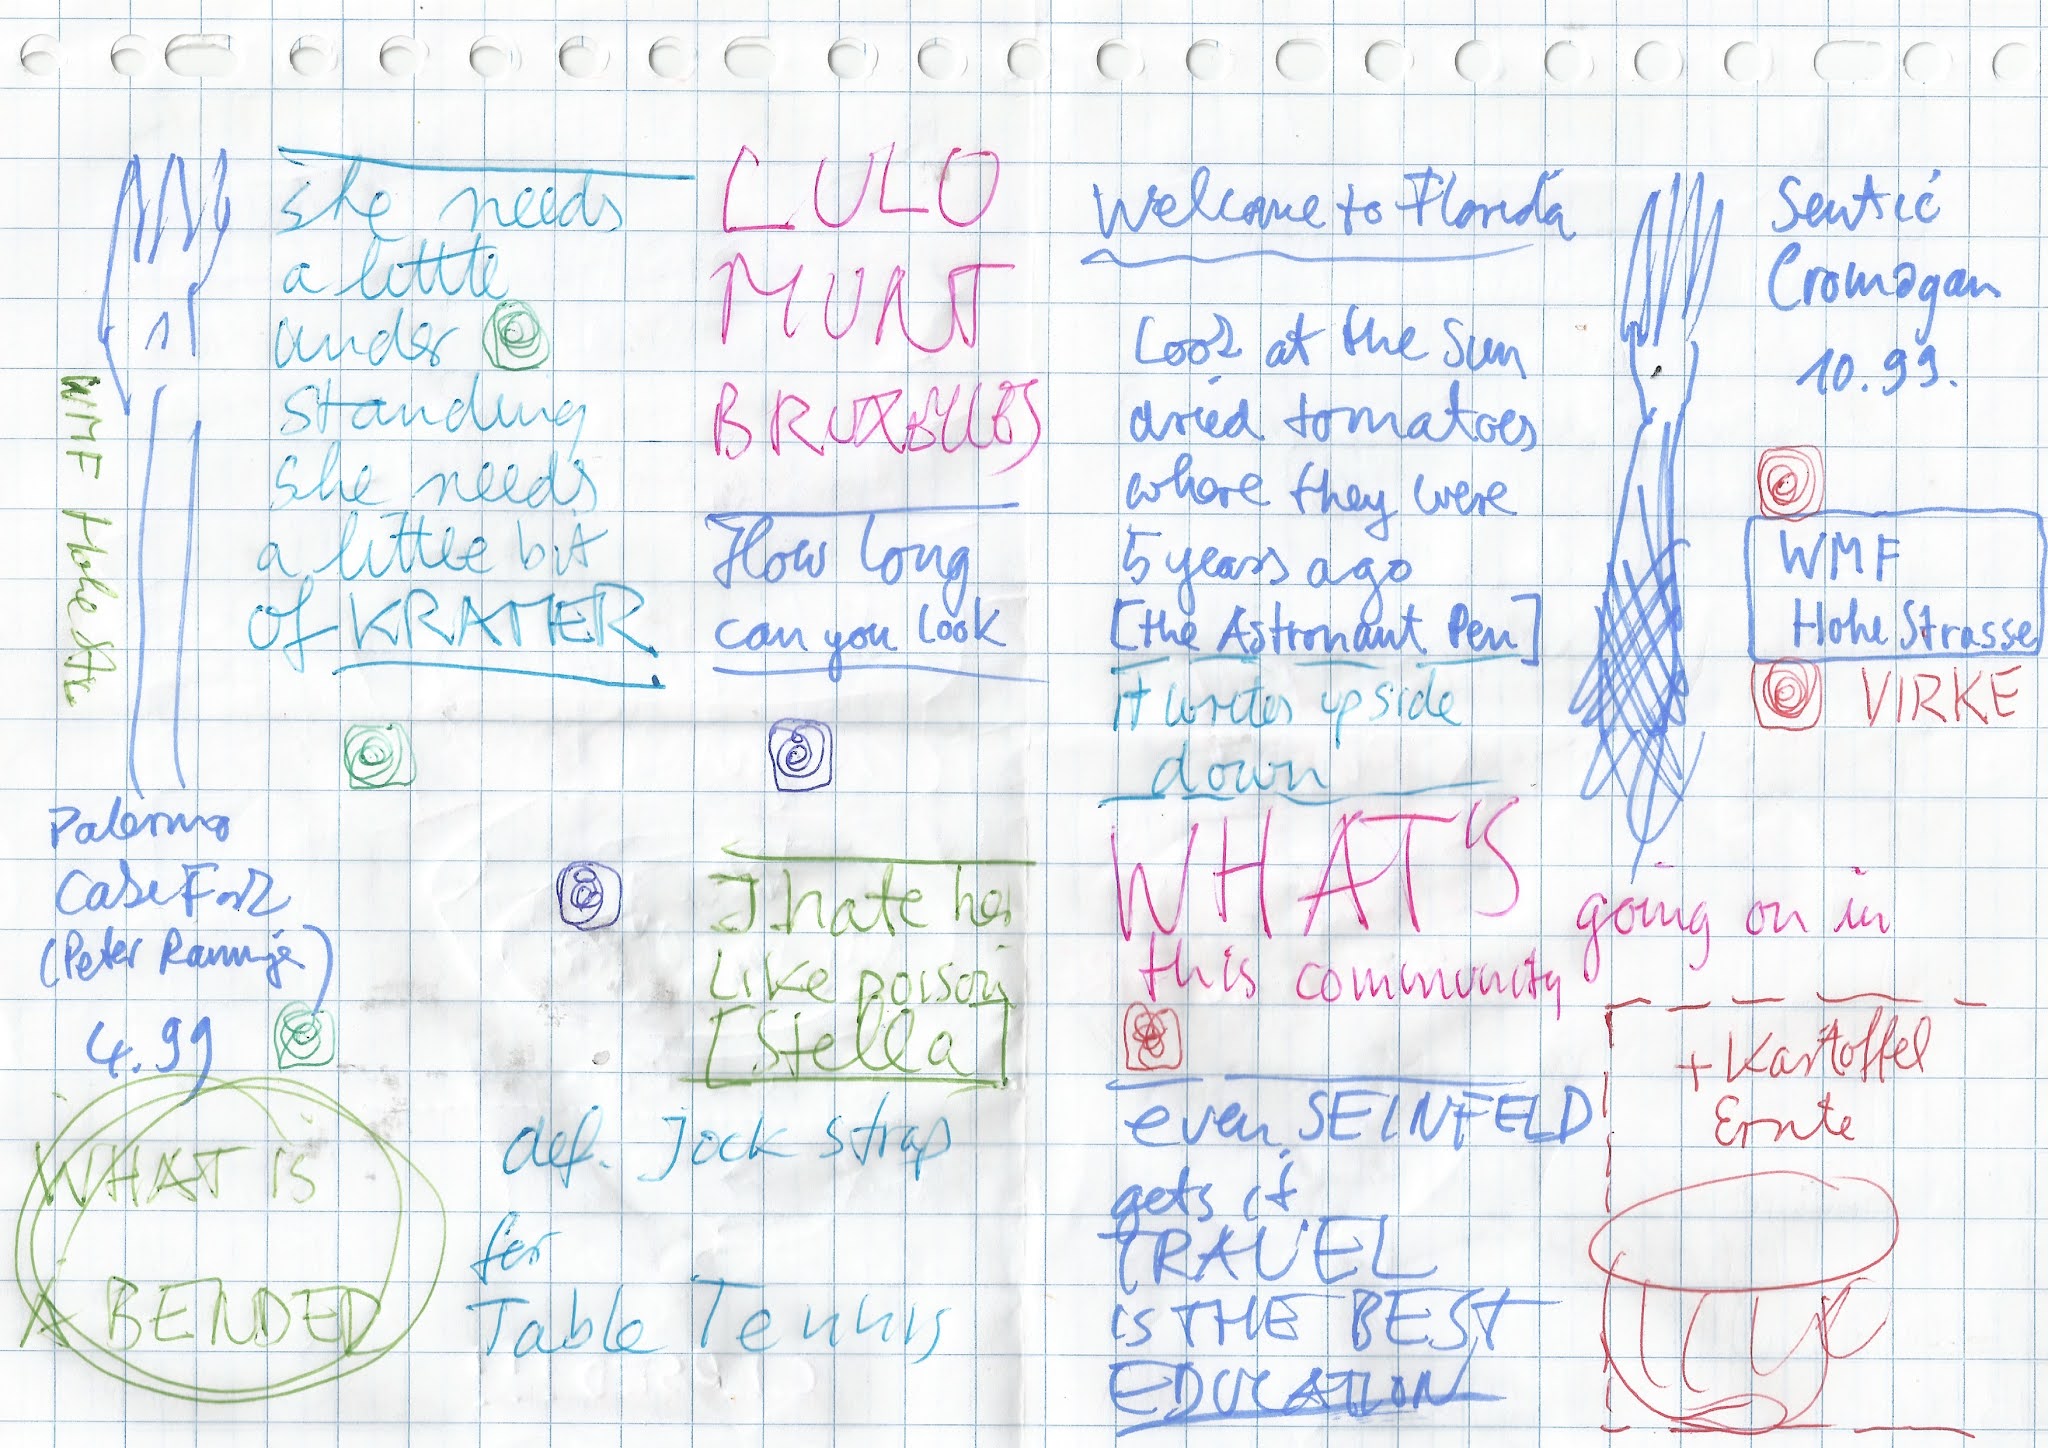 she needs
a little
under
standing
she needs
a little bit
of KRATER
WMF Hohe Str.
Palermo
(Peter
4.99
WHAT is
A BENDED
LULO
MUNT
How long
can you look
I hate her
Like poison
[Stella]
def. Jock strap
for
Table Tennis
Welcome to Florida
Look at the Sun
dried tomatoes
where they were
5 years ago
[the Astronaut Pen]
it writes upside
down
WHAT'S going on in
this community
even SEINFELD
gets it
TRAVEL
is THE BEST
EDUCATION
Cromogan
10.99.
WMF
Hohe Strasse
VIRKE
+ Kartoffel
Ernte